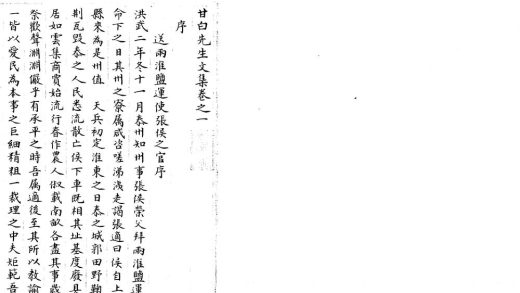 甘白先生文集卷之一
序
送兩淮鹽運使張侯之官序
洪武二年冬十一月泰州知州事張侯榮父拜兩淮鹽運
命下之日其州之寮属咸咨嗟涕洟走謁張適曰侯自上
縣來為是州值 天兵初定淮東之日泰之城郭田野鞠
荆瓦毁泰之人民悉流散亡侯下車既相其址基度廢具
居如雲集商賈始流行春作農人俶載南畝各盡其事歲
祭歡聲淵淵儼乎有承平之時吾属適後至其所以教諭
一皆以愛民為本事之巨細精粗一裁理之中夫矩範吾